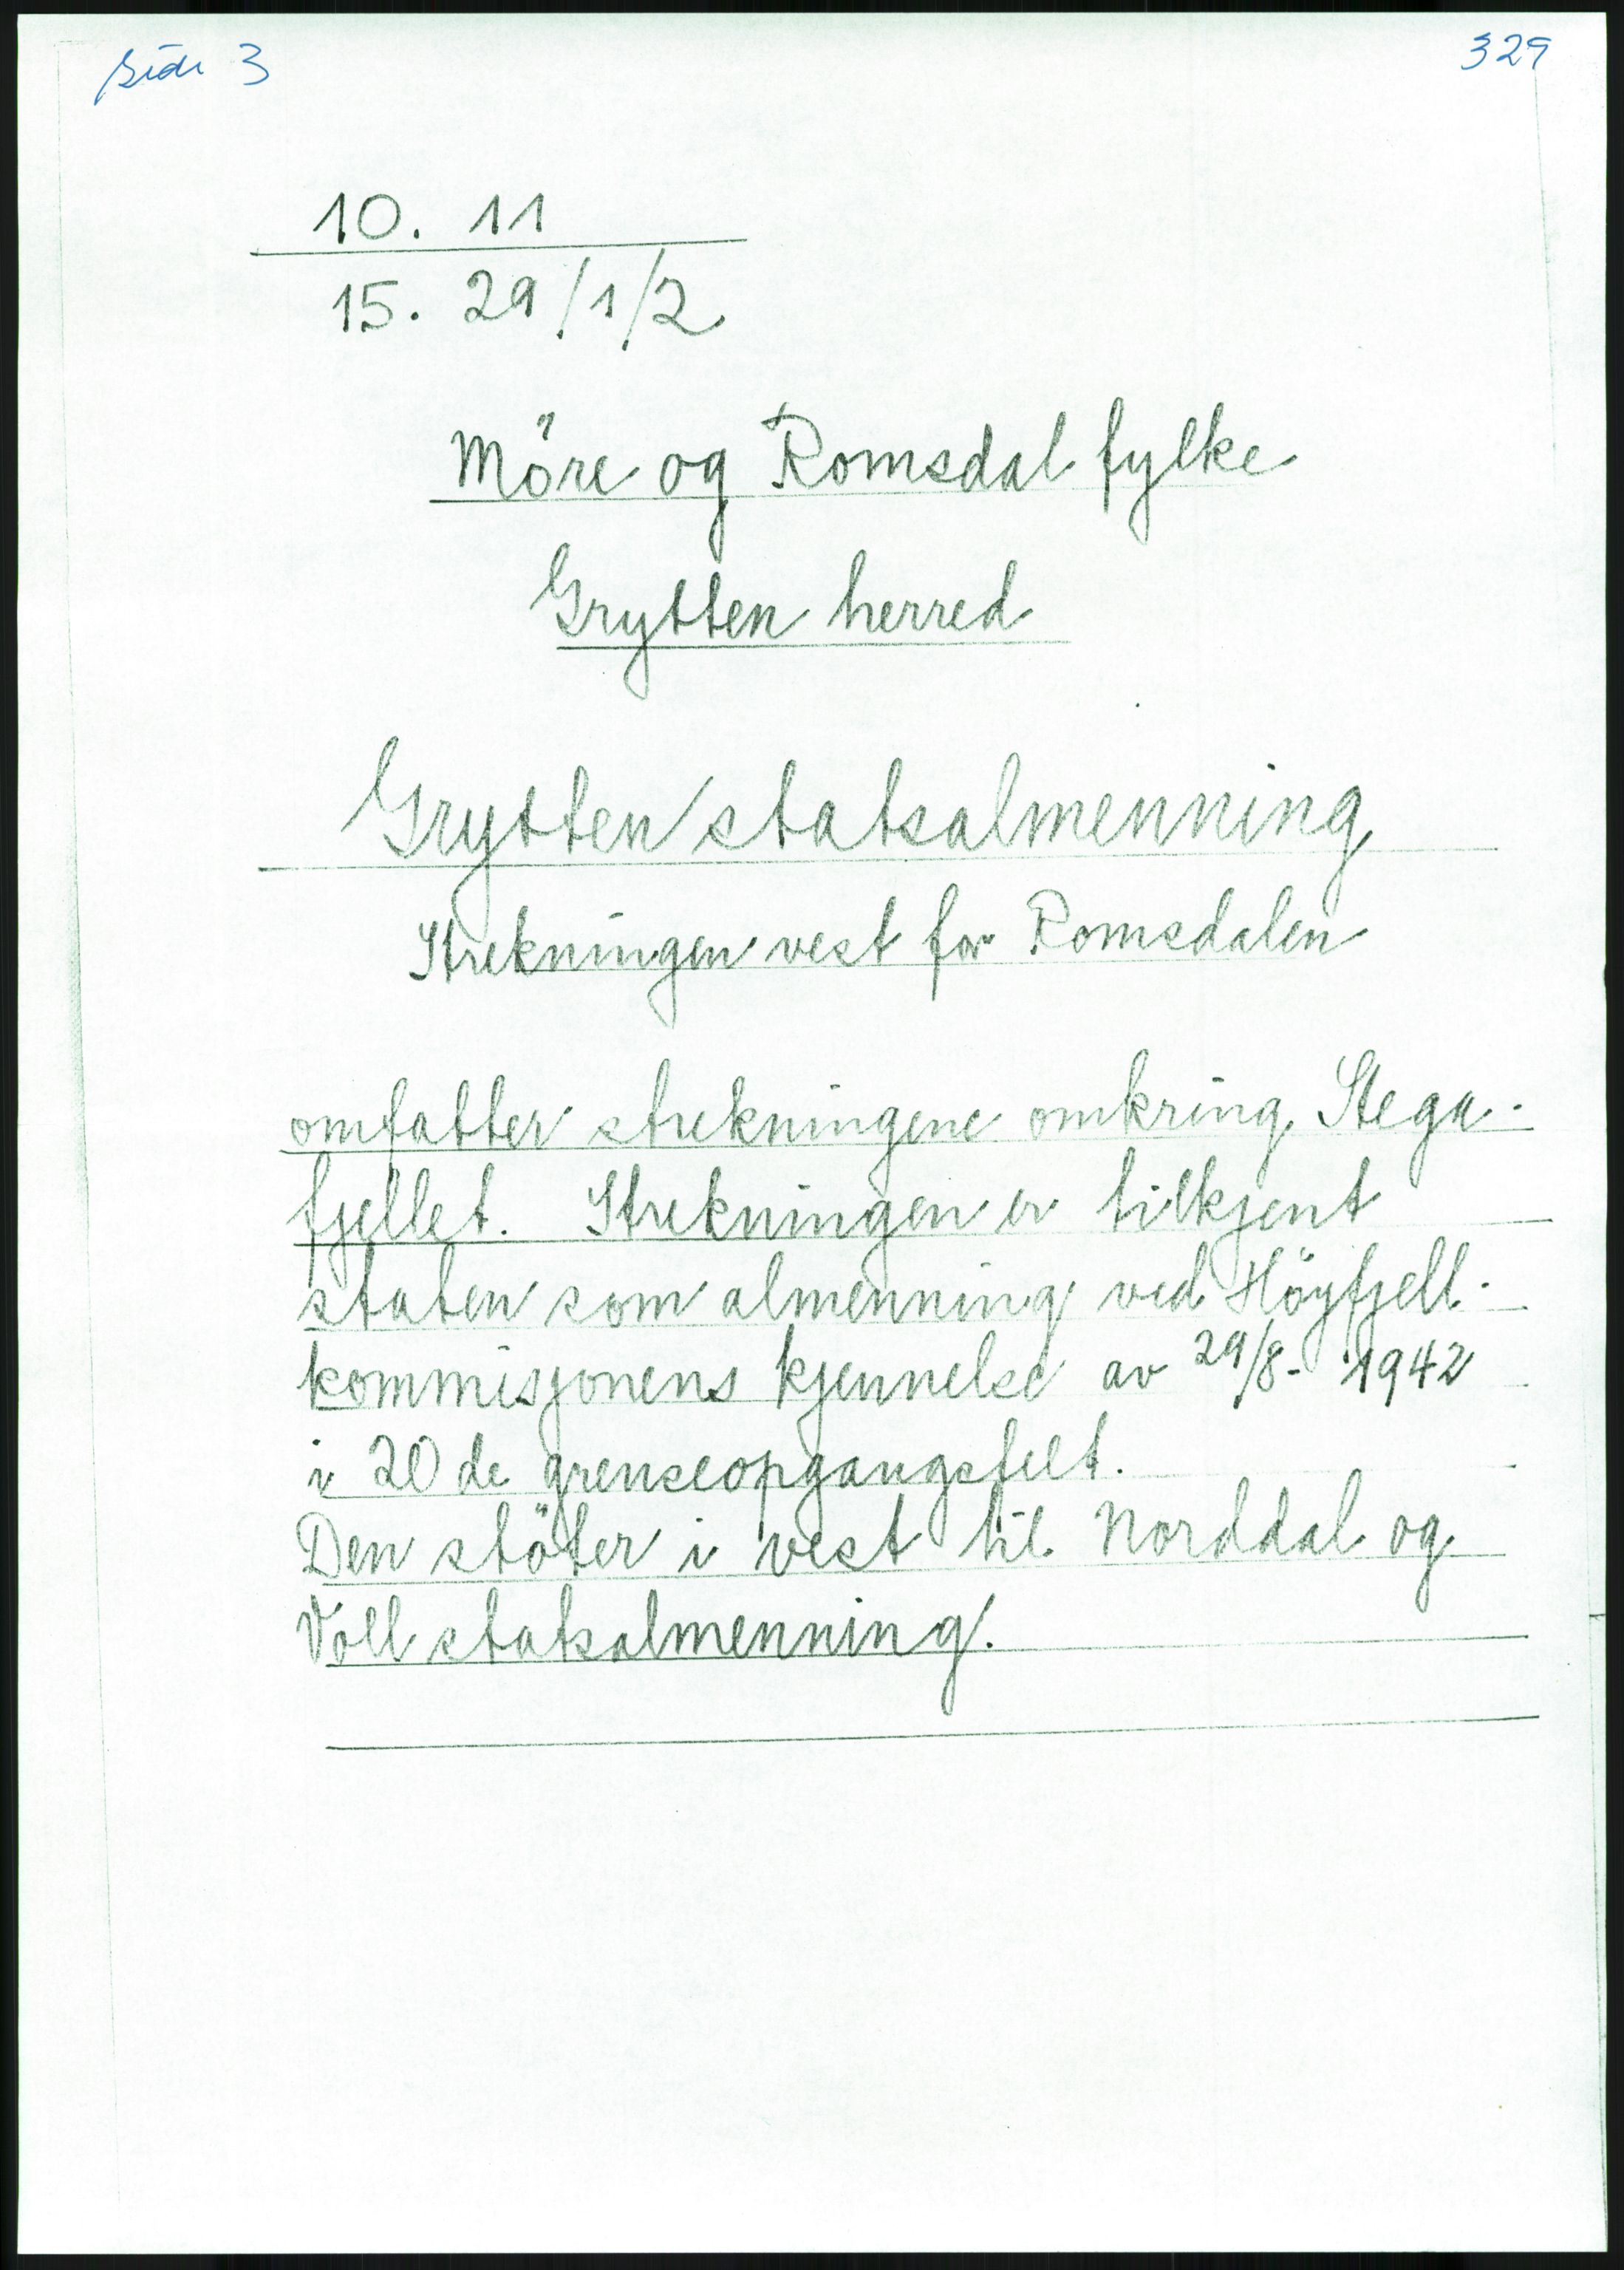 side 3
329
10. 11
15. 29/1/2
Möre og Romsdal fylke
Grytten herred
Grytten statsalmenning
Strekningen vest for Romsdalen
omfatter strekningene omkring Stega-
fjellet. Strekningen er tilkjent
staten som almenning ved Höyfjell-
kommisjonens kjennelse av 29/8- 1942
i 20 de grenseopgangsfelt.
Den støter i vest til Norddal og
Voll statsalmenning.